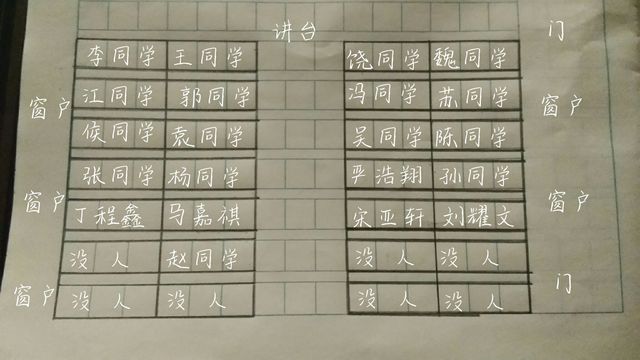 讲台 门
李同学 王同学 饶同学 魏同学
窗户 江同学 郭同学 冯同学 苏同学 窗户
侯同学 袁同学 吴同学 陈同学
窗户 张同学 杨同学 严浩翔 孙同学 窗户
丁程鑫 马嘉祺 宋亚轩 刘耀文
没人 赵同学 没人 没人 门
窗户 没人 没人 没人 没人